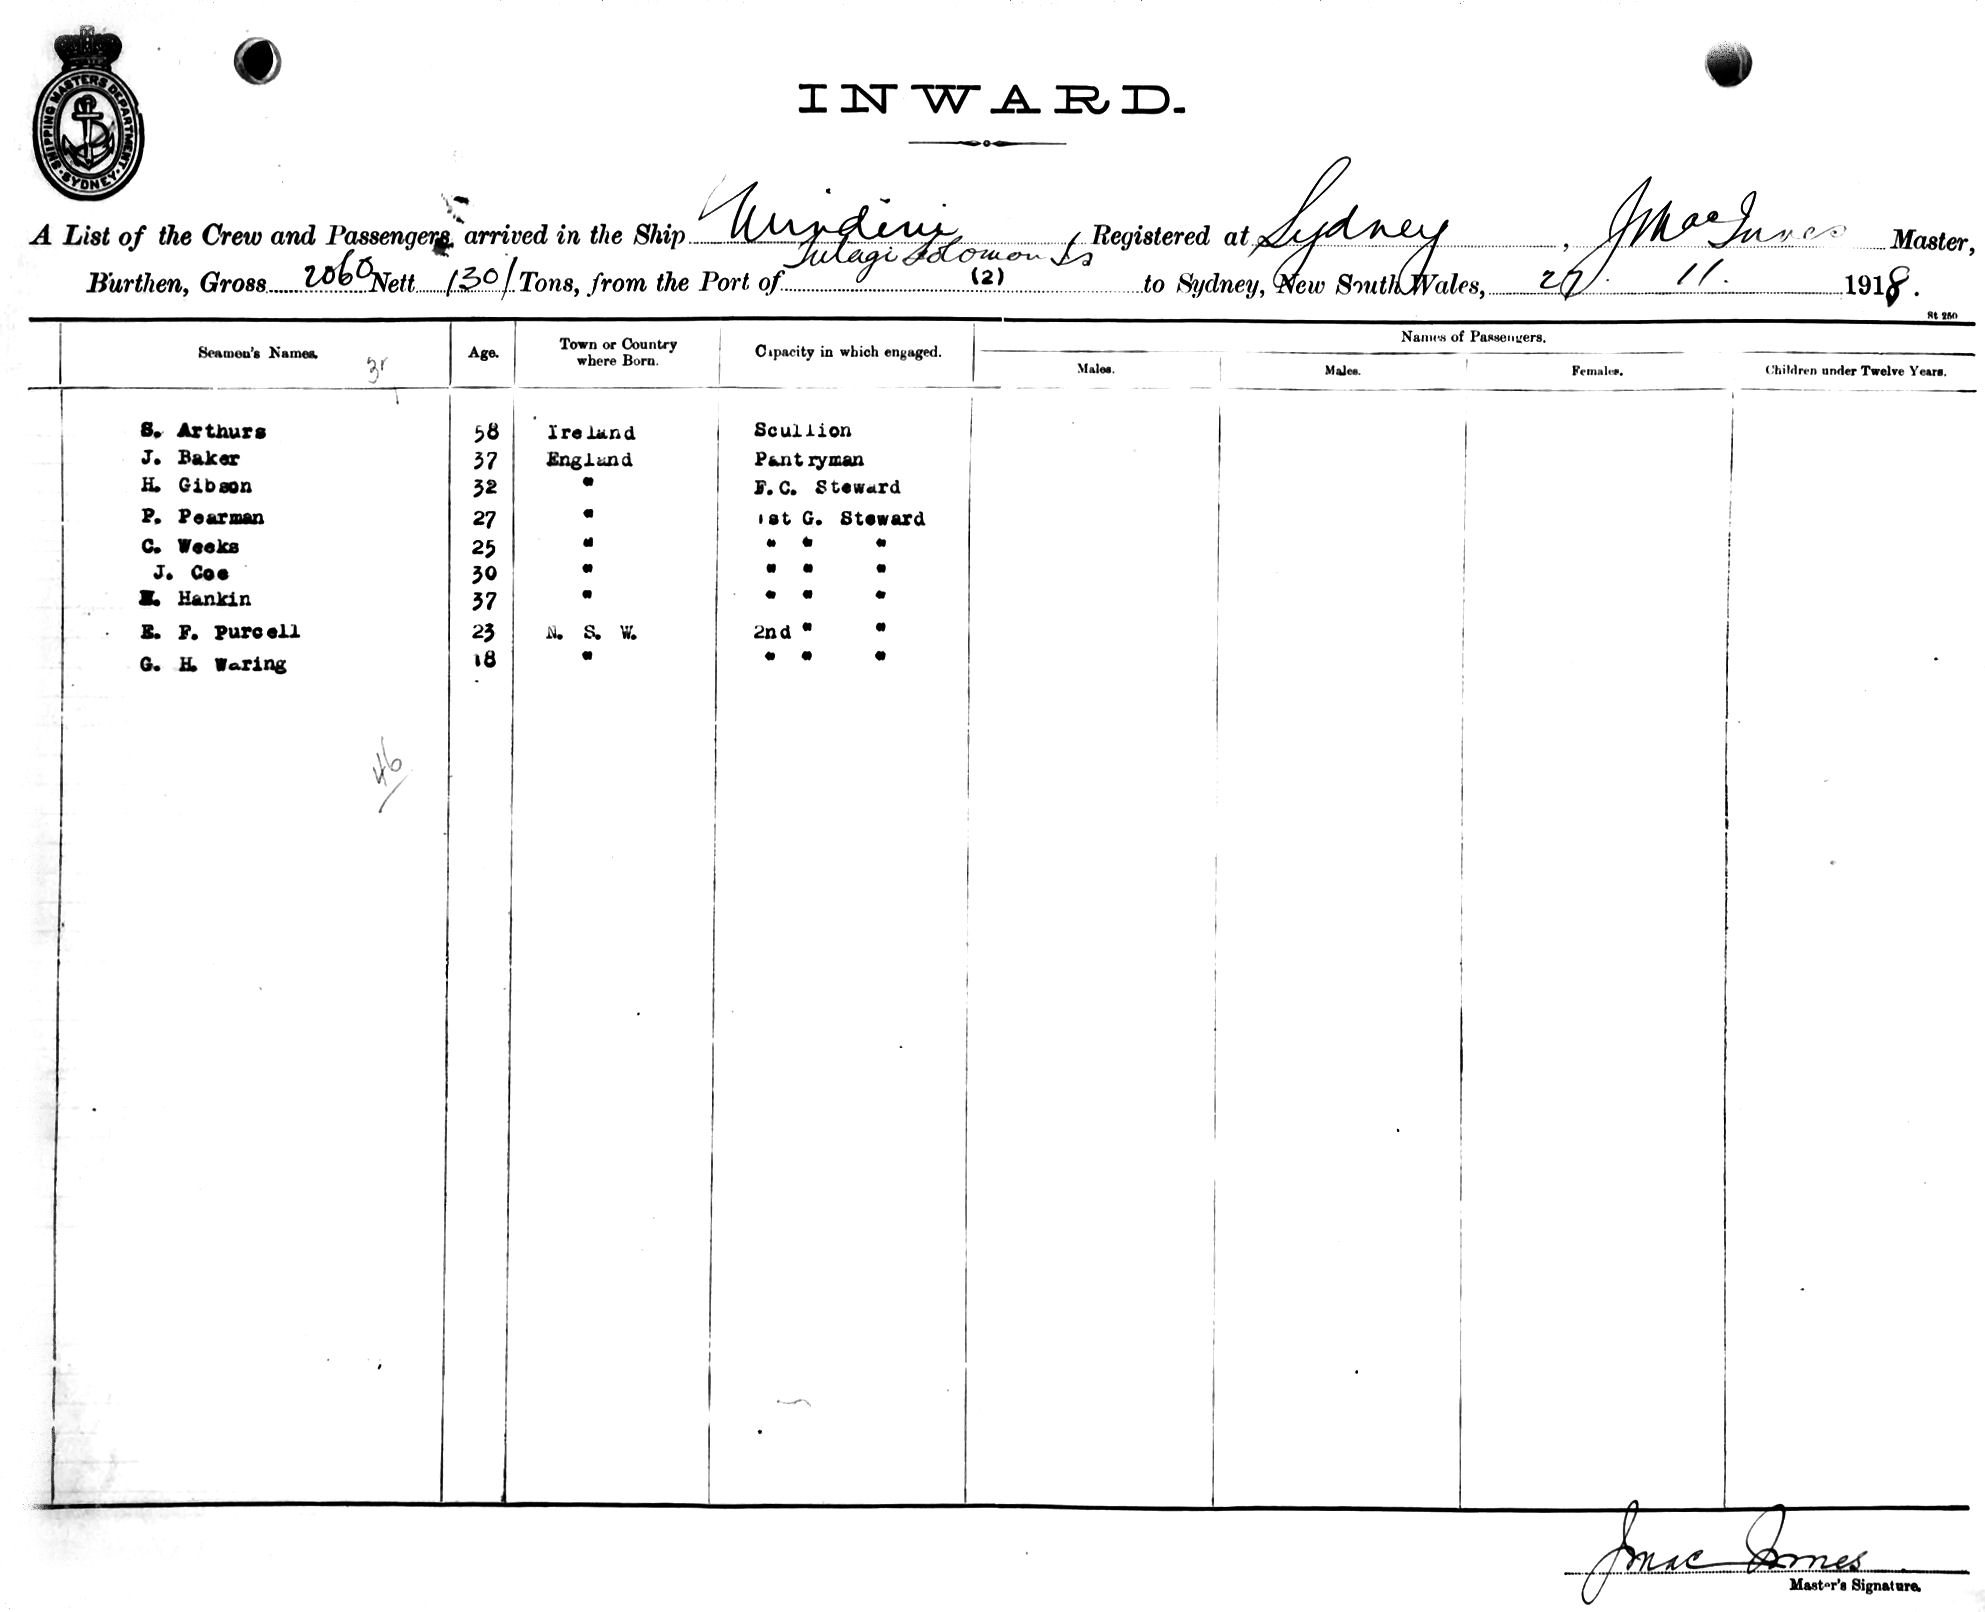 SHIPPING MASTERS DEPARTMENT · SYDNEY ·
INWARD.
A List of the Crew and Passengers arrived in the Ship Registered at Sydney, J Mac Innes Master,
Tulagi Solomon Is
Burthen, Gross 2060 Nett 1301 Tons, from the Port of (2) to Sydney, New South Wales, 11. 1918.
St 250
Seamen's Names. Age. Town or Country where Born. Capacity in which engaged. Names of Passengers.
Males. Males. Females. Children under Twelve Years.
S. Arthurs 58 Ireland Scullion
J. Baker 37 England Pantryman
H. Gibson 32 " F.C. Steward
P. Pearman 27 " 1st G. Steward
C. Weeks 25 " " " "
J. Coe 30 " " " "
Hankin 37 " " " "
E. F. Purcell 23 N. S. W. 2nd " "
G. H. Waring 18 " " " "
46
J Mac Innes
Master's Signature.